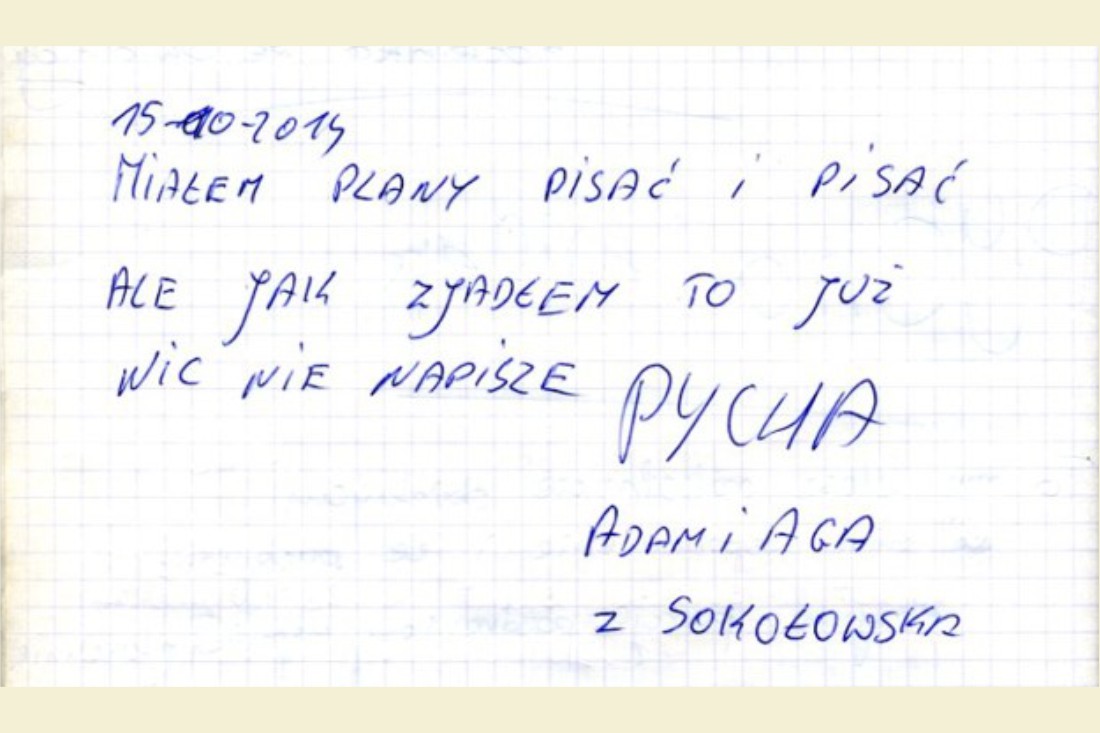 15-10-2014
MIAŁEM PLANY PISAĆ i PiSAĆ
ALE JAK ZJADŁEM TO JUŻ
NIC NIE NAPISZE PYCHA
ADAM i AGA
Z SOKOŁOWSKA